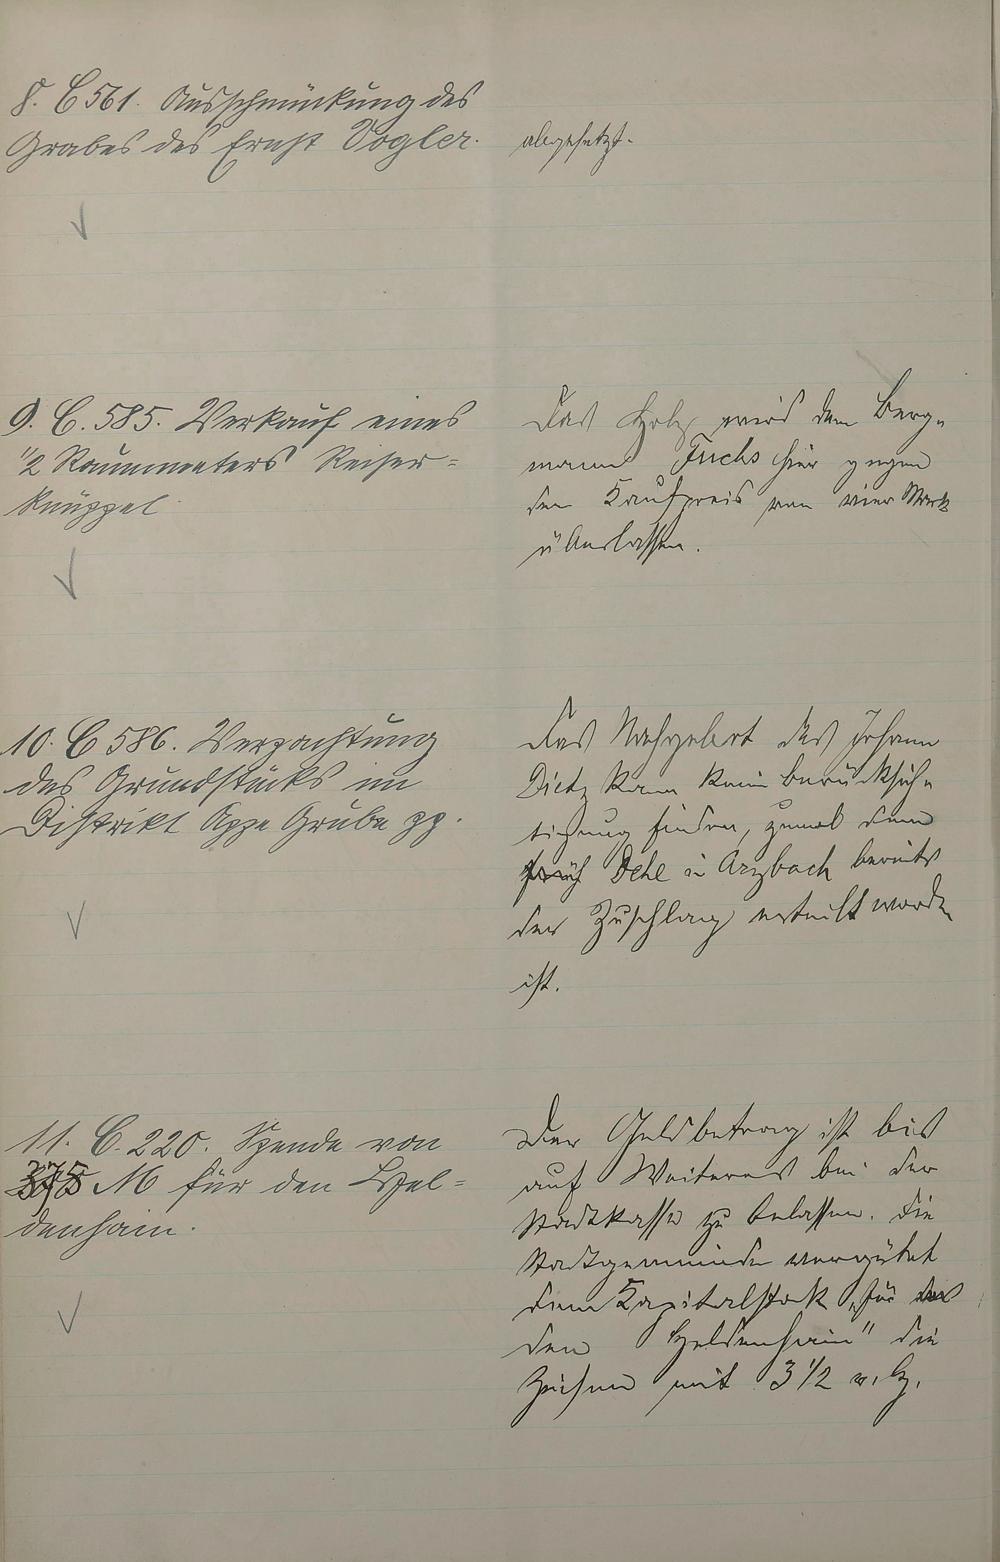 8. C 561. Ausschmückung des
Grabes des Ernst Vogler.
abgesetzt.
9. C. 585. Verkauf eines
1/2 Raummeters Reiser-
knüppel
Das Holz wird dem Berg-
mann Fuchs hier gegen
den Kaufpreis von vier Mark
überlassen.
10. C 586. Verpachtung
des Grundstücks im
Distrikt Appe Grube pp.
Das Nachgebot des Johann
Dietz kann keine Berücksich-
tigung finden, zumal dem
Dehe in Arzbach bereits
der Zuschlag erteilt worden
ist.
11. C. 220. Spende von
375 M für den Hel-
denhain.
Der Geldbetrag ist bis
auf Weiteres bei der
Stadtkasse zu belassen. Die
Stadtgemeinde vergütet
dem Kapitalstock „für
den Heldenhain" die
Zinsen mit 3 1/2 v. H.